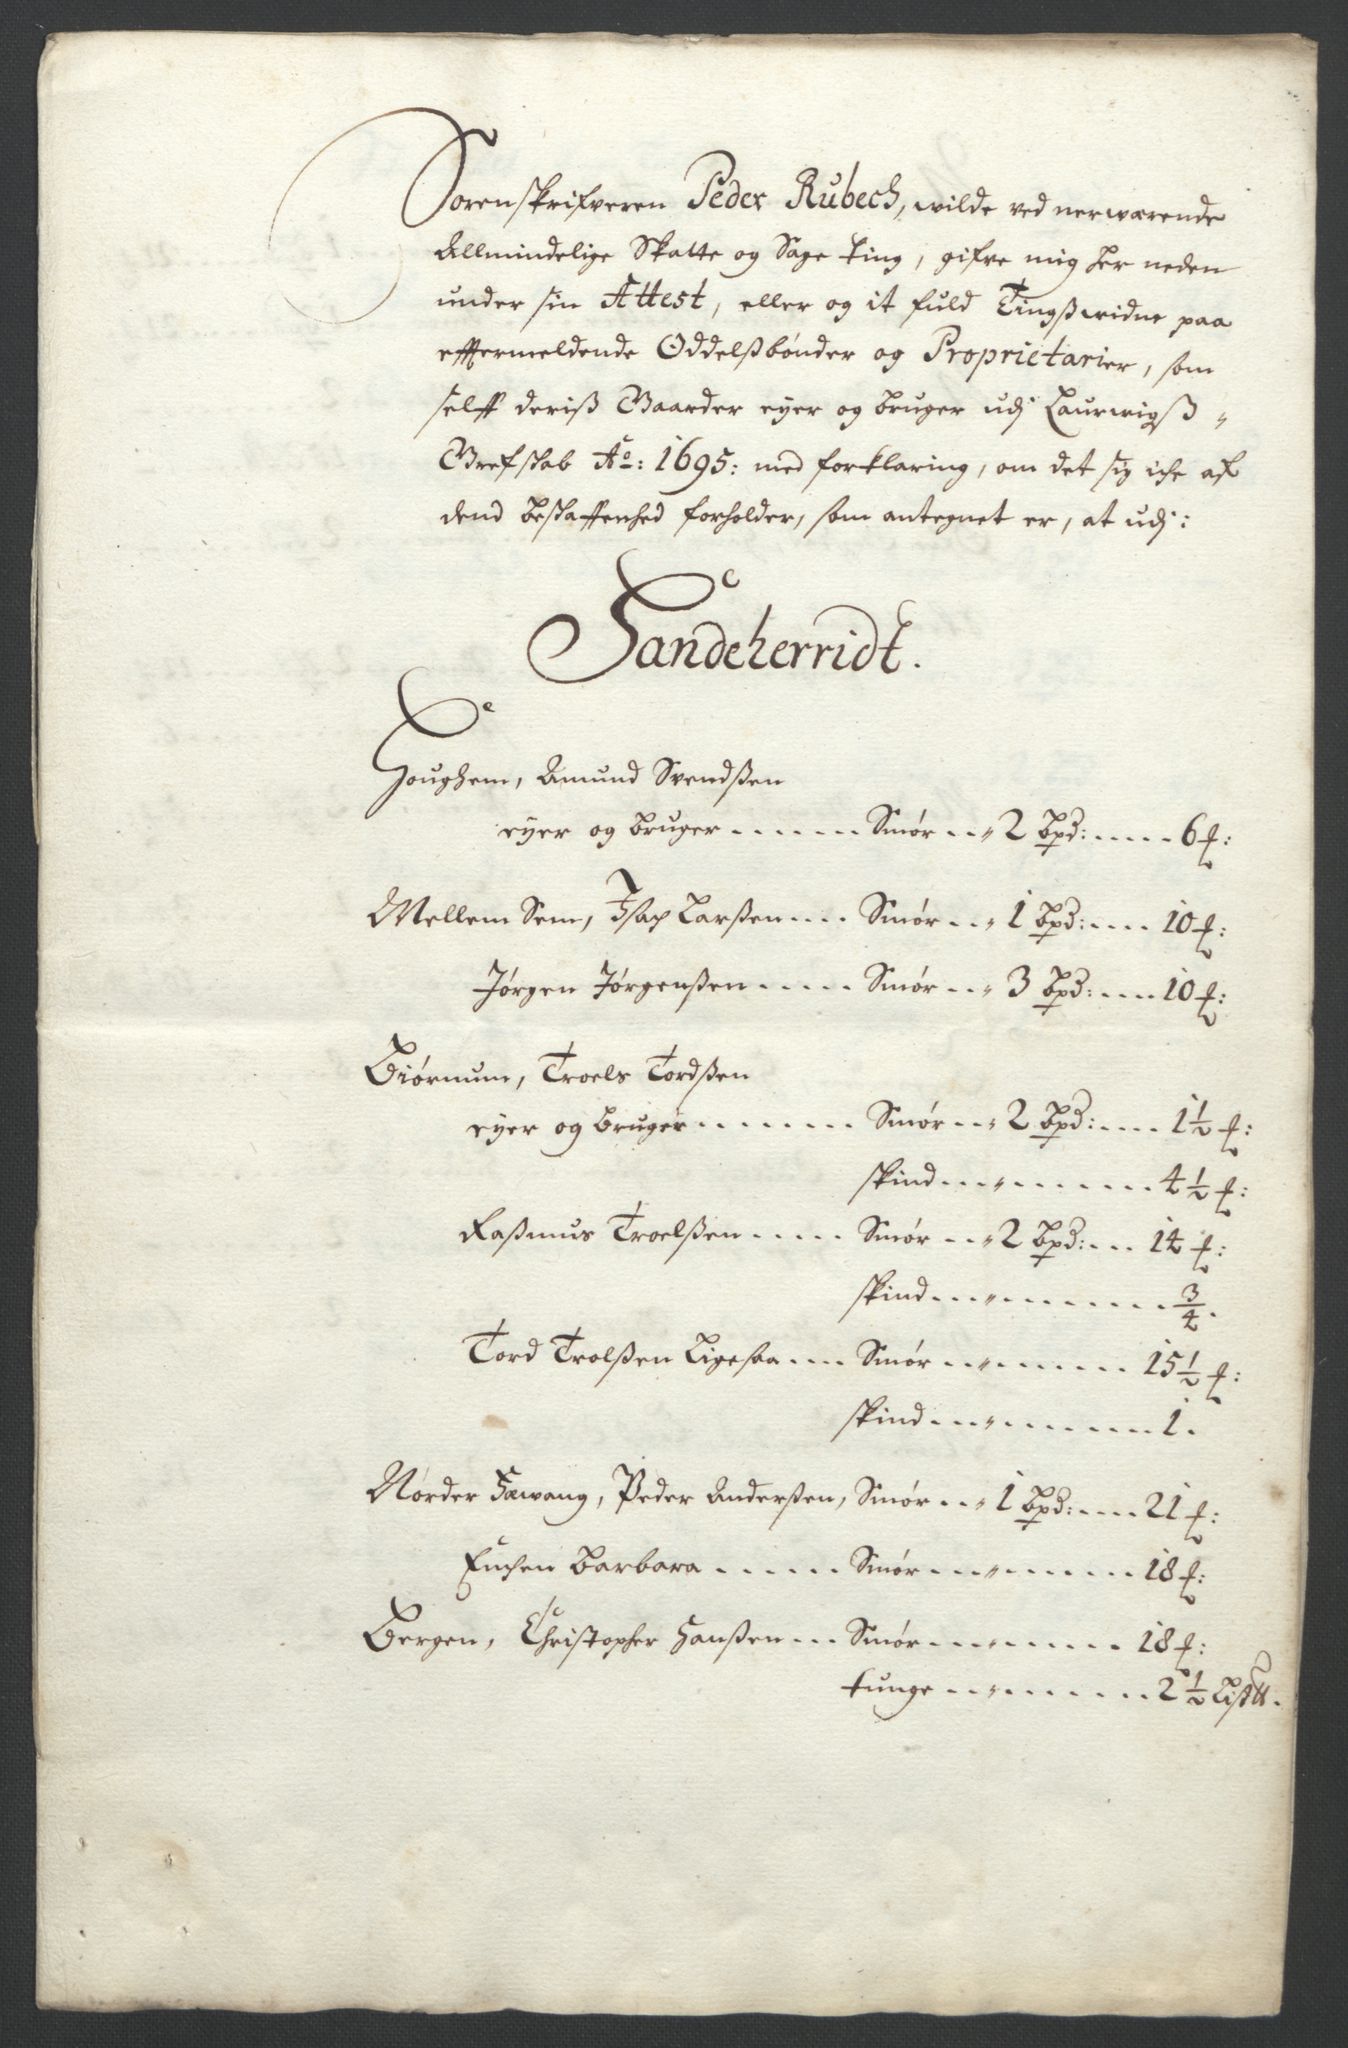 Sorenskrifveren Peder Rubech, wilde ved nerwærende
Allmindelige Skatte og Sage ting, gifve mig her neden
under sin Attest, eller og it fuld Tingsswidne paa
effermeldende Oddelssbønder og Proprietarier, som
self deriss Gaarder eyer og bruger udj Laurwigss
Grefskab Ao: 1695: med forklaring, om det sig iche af
dend beskaffenhed forholder, som antegnet er, at udj:
Sandeherridt.
Houghem, Amund Svendssen
eyer og bruger ...... Smør .. 2 bpd: .... 6 f:
Mellem Sem, Isach Larssen .... Smør .. 1 bpd: .... 10 f:
Jørgen Jørgenssen ..... Smør .. 3 bpd: .... 10 f:
Biørnum, Troels Tordssen
eyer og bruger ....... Smør .. 2 bpd: .... 1½ f:
skind ......... 4½ f:
Rassmus Troelssen ..... Smør .. 2 bpd: ... 14 f:
skind .......... ¾.
Tord Trolssen Ligesaa .... Smør ........ 15½ f:
skind ......... 1.
Nørder Hawang, Peder Anderssen, Smør .. 1 bpd: .... 21 f:
Enchen Barbara ...... Smør ......... 18 f:
Bergen, Christopher Hanssen ... Smør ........ 18 f:
tunge ........ 2½ Lispd.